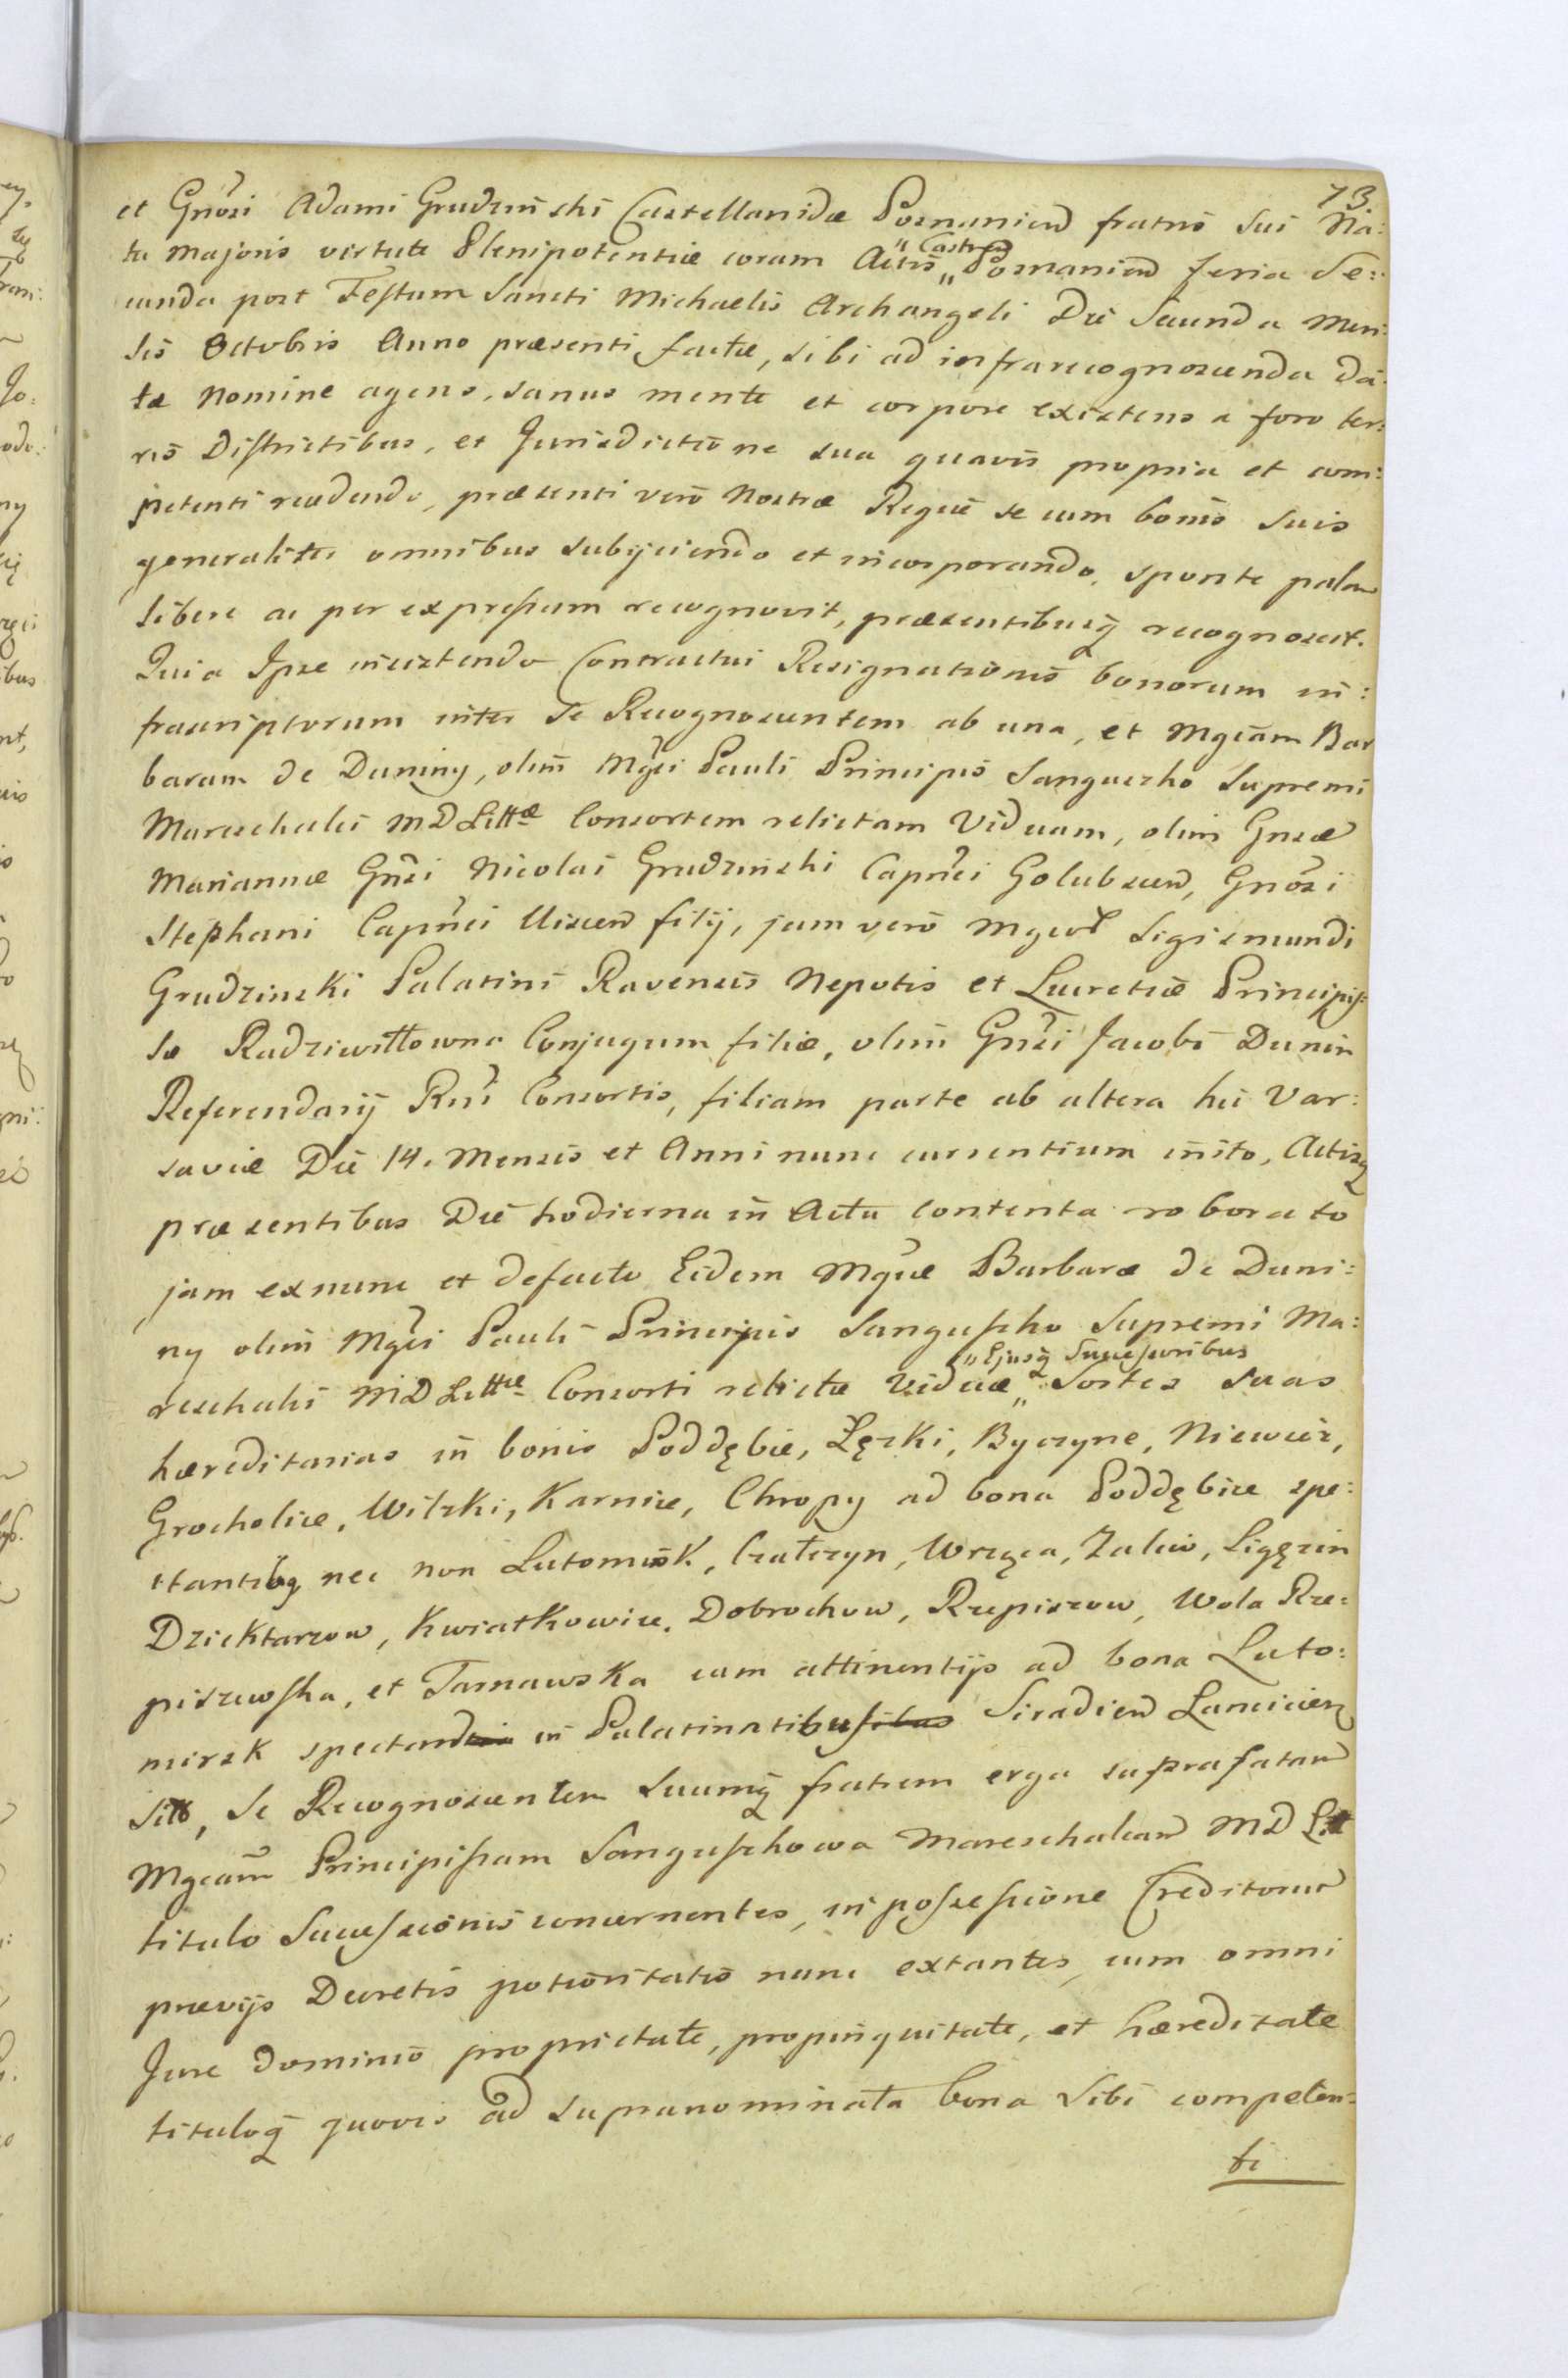 73.
et Gnosi Adami Grudzinski Castellanidæ Posnanien fratris sui Na:
tu majoris virtute Plenipotentiæ coram Actis " Castren " Posnanien feria Se:
cunda post Festum Sancti Michaelis Archangeli Die Secunda Men:
sis Octobris Anno præsenti factæ, sibi ad infrarecognoscenda da:
tæ Nomine agens, sanus mente et corpore existens a foro ter:
ris Districtibus, et Jurisdictione sua quavis propria et com:
petenti recedendo, præsenti vero Nostræ Regiæ se cum bonis suis
generaliter omnibus subijciendo et incorporando, sponte palam
libere ac per expressum recognovit, præsentibusq recognoscit.
Quia Ipse insistendo Contractui Resignationis bonorum in:
frascriptorum inter Se Recognoscentem ab una, et Mgcam Bar
baram de Duniny, olim Mgci Pauli Principis Sanguszko Supremi
Mareschalci MD Littæ Consortem relictam Viduam, olim Gnsæ
Mariannæ Gnsi Nicolai Grudzinski Capnei Golubscen, Gnosi
Stephani Capnei Uscien filij, jam vero Mgcor Sigismundi
Grudzinski Palatini Ravensis Nepotis et Lucretiæ Principis:
sæ Radziwiłłowna Conjugum filiæ, olim Gnsi Jacobi Dunin
Referendarij Rni Consortis, filiam parte ab altera hic Var:
saviæ Die 14. Mensis et Anni nunc currentium inito, Actisq
præsentibus Die hodierna in Actu contenta roborato
jam exnunc et defacto Eidem Mgcæ Barbaræ de Duni:
ny olim Mgci Pauli Principis Sanguszko Supremi Ma:
reschalci MD Littæ Consorti relictæ Viduæ " Ejusq Successoribus " Sortes suas
hæreditarias in bonis Poddębice, Łężki, Byczyne, Niewiesz,
Grocholice, Wilczki, Karnice, Chropy ad bona Poddębice spe:
ctantibq nec non Lutomirsk, Czałczyn, Wrzęca, Zalew, Ligęzin
Dzicktarzew, Kwiatkowice, Dobrochow, Rzepiszow, Wola Rze:
piszewska, et Tarnawska cum attinentijs ad bona Luto:
mirsk spectand in Palatinatibus Siradien Lancicien
sitt, Se Recognoscentem Suumq fratrem erga suprafatam
Mgcam Principissam Sanguszkowa Mareschalcam MD Litt
titulo Successionis concernentes, in possessione Creditorum
prævijs Decretis potioritatis nunc extantes, cum omni
Jure dominio proprietate, propinquitate, et hæreditate
tituloq quovis ad supranominata bona Sibi competen:
ti